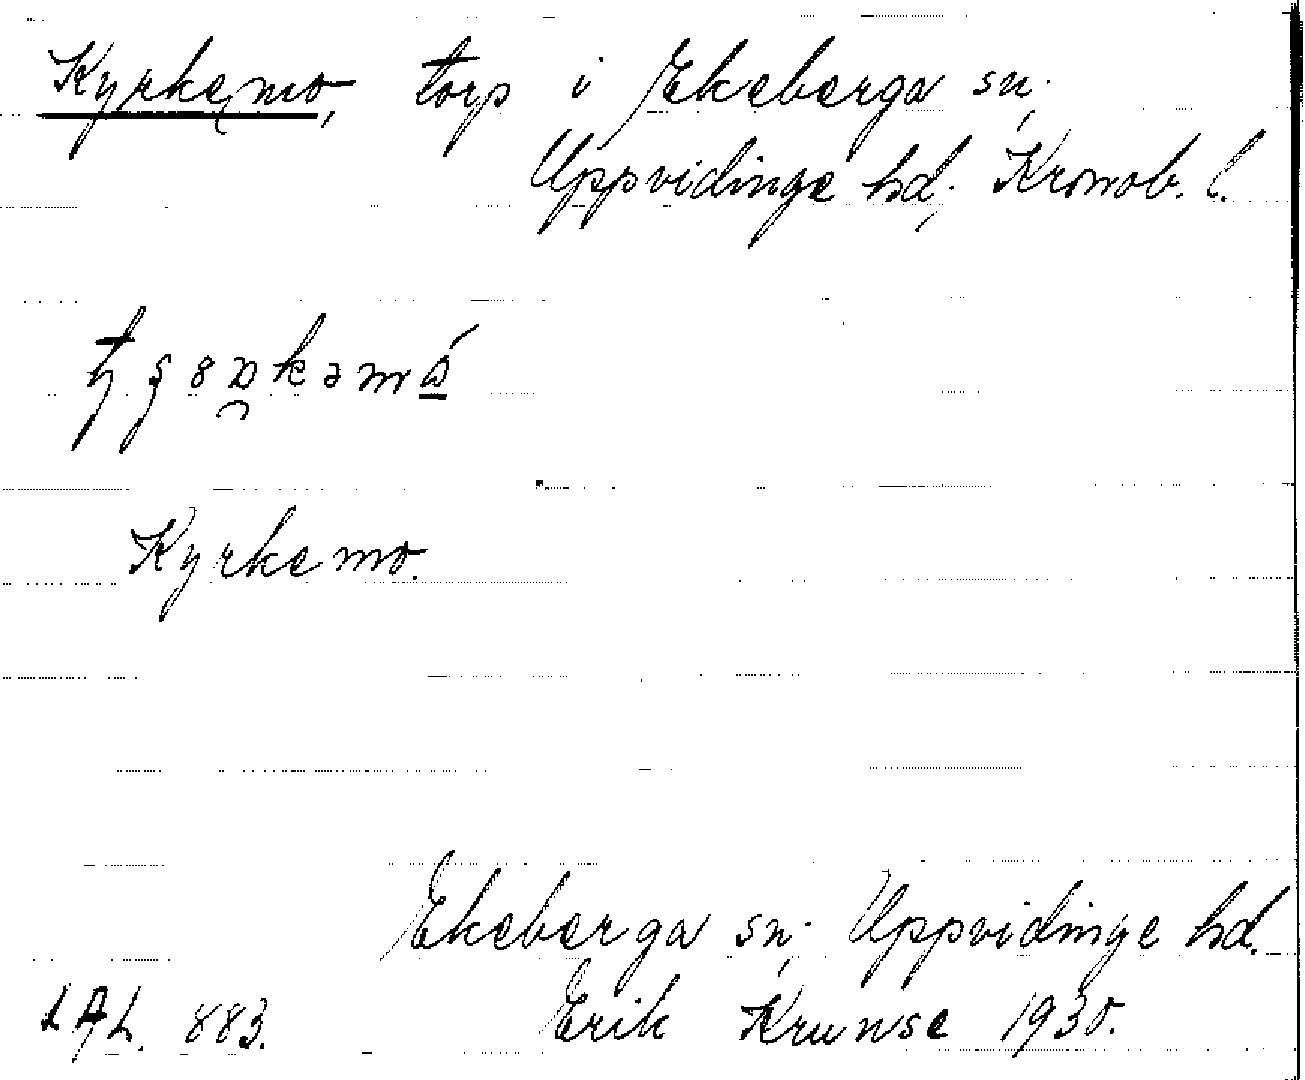 Kyrkemo, torp i Ekeberga sn,
Uppvidinge hd, Kronob. l.
Kyrkemo.
Ekeberga sn, Uppvidinge hd.
LAL. 883. Erik Krunse 1930.